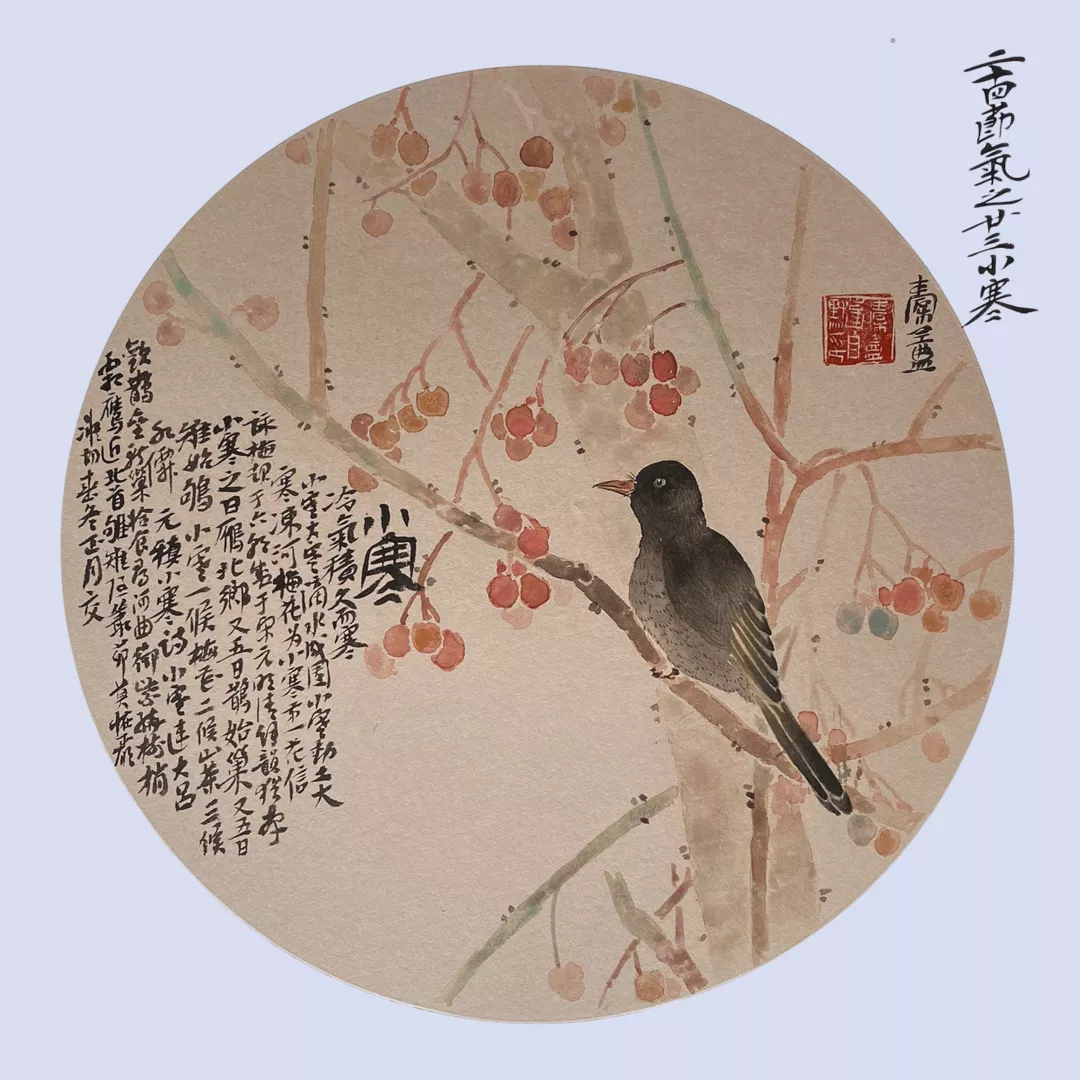 二十四節氣之廿三小寒
小寒
冷氣積久而寒
小寒大寒滴水成團小寒勝大
寒凍河梅花为小寒第一花信
詠梅起于六朝盛于宋元明清余韻猶存
小寒之日雁北鄉又五日鵲始巢又五日
雉始鴝小寒一候梅花二候山茶三候
水僊元稹小寒诗小寒連大呂
歡鵲壘新巢拾食尋河曲銜紫繞樹梢
霜鷹近北首雊雉隱叢茆莫怪嚴
凝切春冬正月交